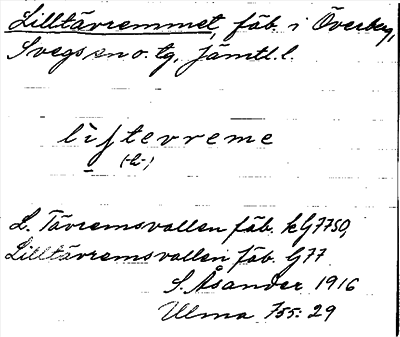 Lilltävremmet, fäb. i Överberg,
Svegs sn o. tg, Jämtl. l.
liʃtevreme
(-li-)
L. Tävremsvallen fäb. kG7750,
Lilltävremsvallen fäb. G77
S. Åsander 1916
Ulma 755: 29